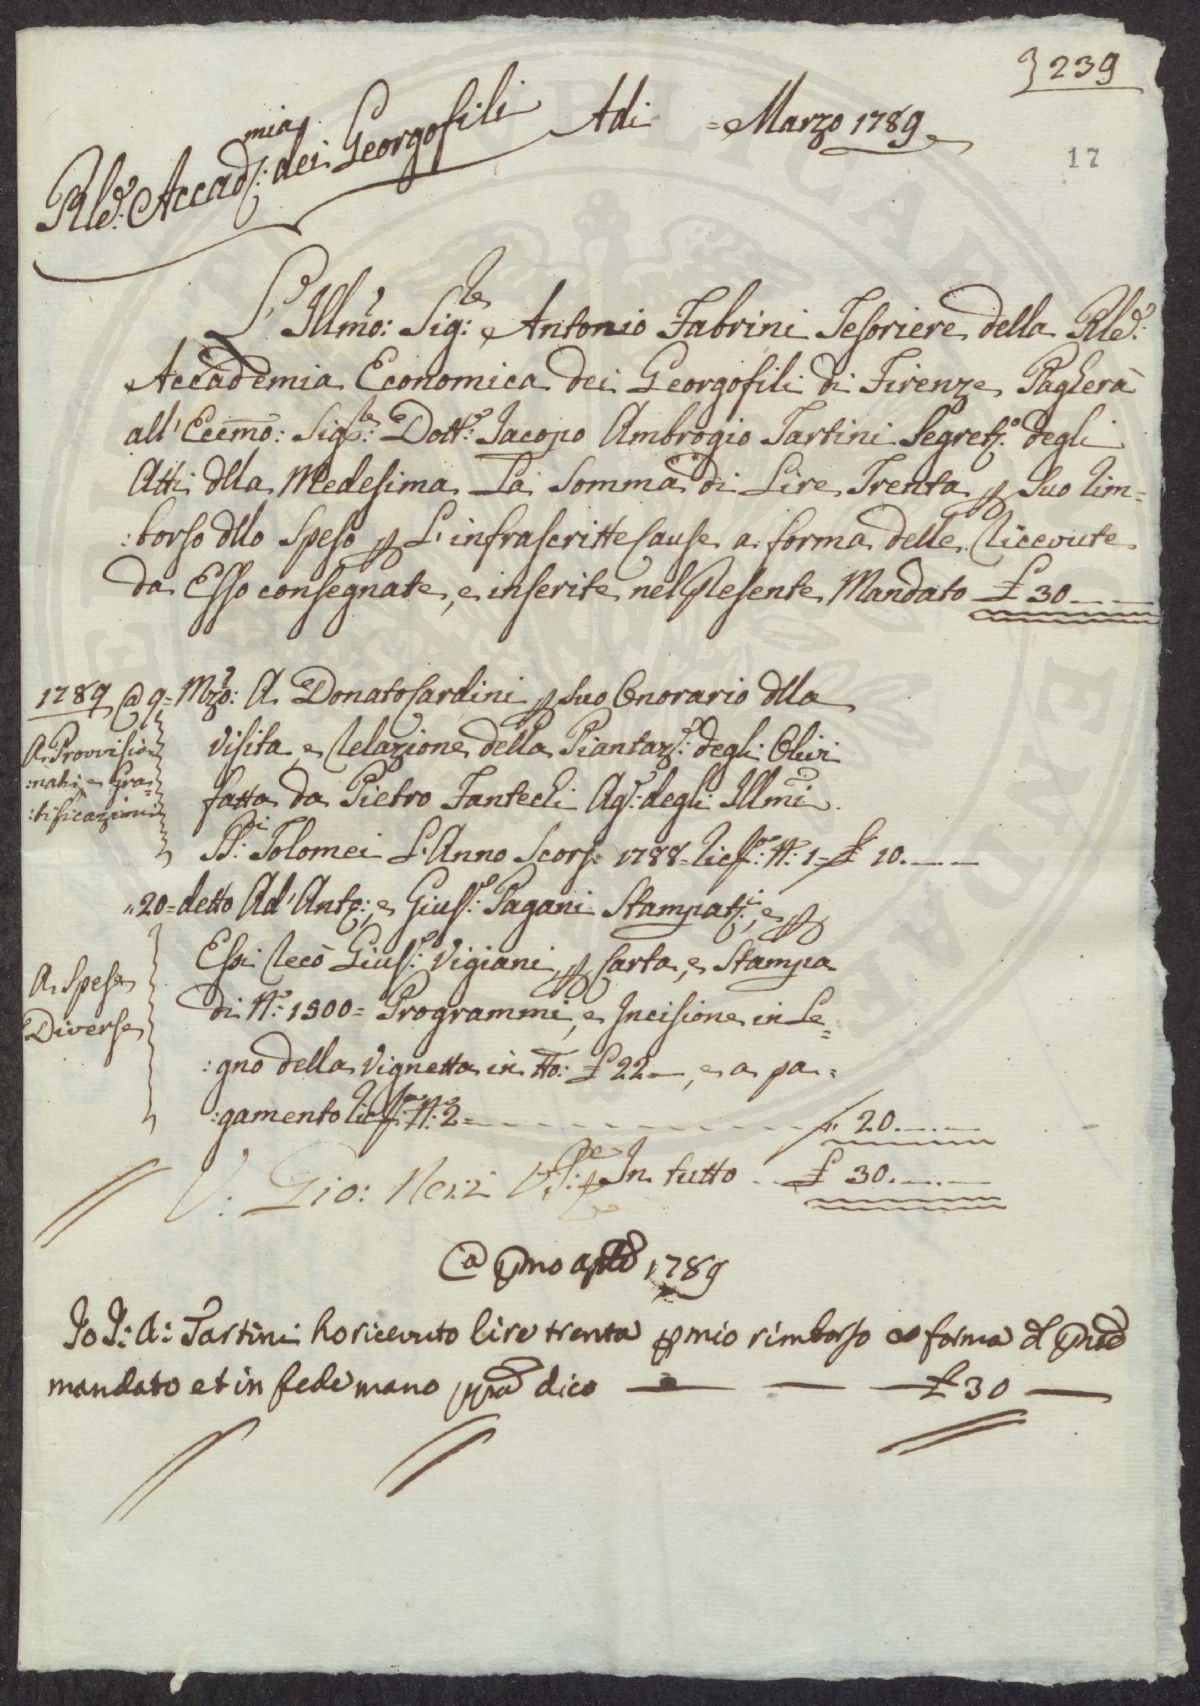 239
17
Rle. Accad:mia dei Georgofili Adi = Marzo 1789
L'Illmo: Sig:re Antonio Fabrini Tesoriere della Rle:
Accademia Economica dei Georgofili di Firenze Pagherà
all'Eccmo: Sig:re Dott:e Jacopo Ambrogio Tartini Segret:o degli
Atti dlla Medesima La Somma di Lire Trenta p Suo Rim=
:borso dllo Speso p L'infrascritte Cause a forma delle Ricevute
da Esso consegnate, e inserite nel Presente Mandato £ 30.--
1789 @ 9= Mzo: A Donato Cardini p suo Onorario dlla
A Provvisio
:nati, e Gra=
:tificazioni
visita e Relazione della Piantaz:e degli Olivi
fatta da Pietro Fantechi Ag:e degli Illmi
SS:ri Tolomei L'Anno Scors: 1788= Ric: N:o 1= £ 10.--
"20= detto Ad'Ant:o, e Gius:e Pagani Stampat:i, e p
A Spese
Diverse
Essi Recò Gius:e Vigiani, p Carta, e Stampa
di N:o 1500= Programmi, e Incisione in Le=
:gno della Vignetta in tto: £ 22--, e a pa=
:gamento Ric: N:o 2= £ 20.--
V. Gio: Neri V: P:te In tutto £ 30.--
@ pmo aple 1789
Io J: A: Tartini ho ricevuto lire trenta p mio rimborso a forma d pnte
mandato et in fede mano ppra dico £ 30